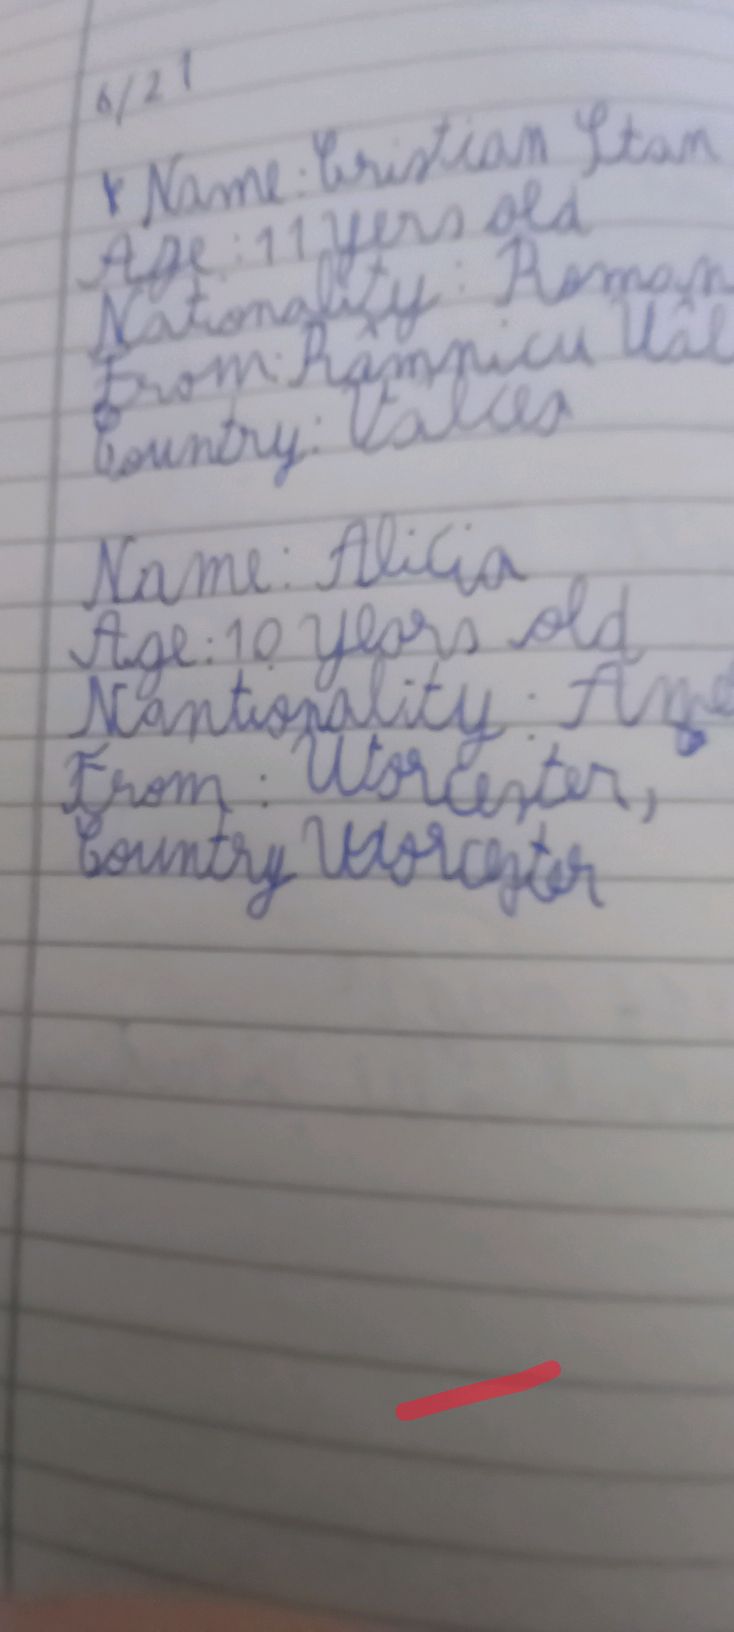 6/21
Name: Cristian Stan
Age: 11 yers old
Nationality: Roman
From: Râmnicu Vâl
Country: Valcea
Name: Alicia
Age: 10 years old
Nantionality: Ame
From: Worcester,
Country Worcester